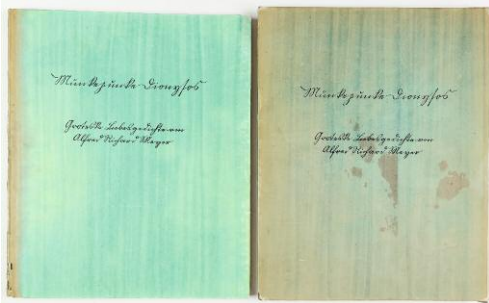 Munkepunke Dionysos
Groteske Liebesgedichte von
Alfred Richard Meyer
Munkepunke Dionysos
Groteske Liebesgedichte von
Alfred Richard Meyer